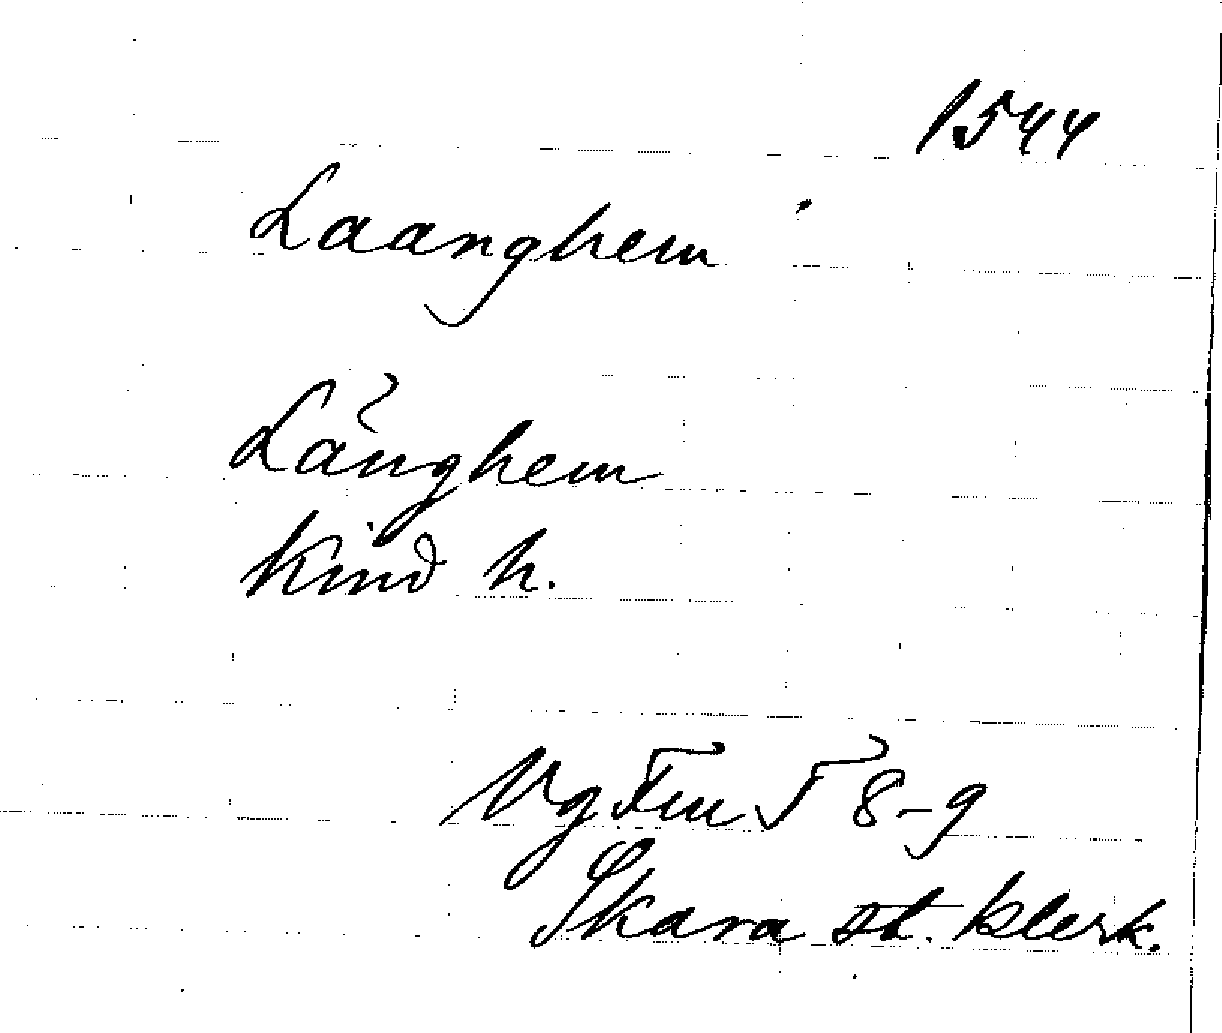 1544
Laanghem
Långhem
Kind h.
Vg Fm I 8-9
Skara st. klerk.